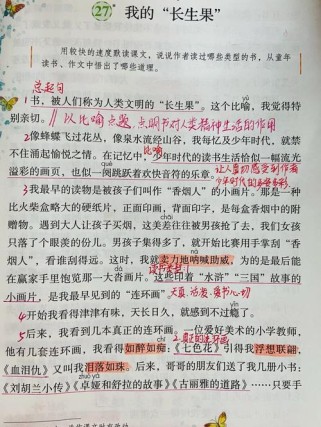 27 我的“长生果”
用较快的速度默读课文，说说作者读过哪些类型的书，从童年
读书、作文中悟出了哪些道理。
总起句
1书，被人们称为人类文明的“长生果”。这个比喻，我觉得特
别亲切。以比喻点题，点明书对人类精神生活的作用
2像蜂蝶飞过花丛，像泉水流经山谷，我每忆及少年时代，就禁
不住涌起愉悦之情。在记忆中，少年时代的读书生活恰似一幅流光
溢彩的画页，也似一阕跳跃着欢快音符的乐章。
3我最早的读物是被孩子们叫作“香烟人”的小画片。那是一种
比火柴盒略大的硬纸片，正面印画，背面印字，是每盒香烟中的附
赠物。遇到大人让孩子买烟，这美差往往被男孩抢了去，我们女孩
只落了个眼羡的份儿。男孩子集得多了，就开始比赛用手掌刮“香
烟人”，看谁刮得远。这时，我就卖力地呐喊助威，为的是最后能
在赢家手里饱览那一大沓画片。这些印着“水浒”“三国”故事的
小画片，是我最早见到的“连环画”
4开始我看得津津有味，天长日久，就感到不过瘾了。
5后来，我看到几本真正的连环画。一位爱好美术的小学教师，
他有几套连环画，我看得如醉如痴：《七色花》引得我浮想联翩，
《血泪仇》又叫我泪落如珠。后来，哥哥的朋友们送了我几册小书：
《刘胡兰小传》《卓娅和舒拉的故事》《古丽雅的道路》……只要手